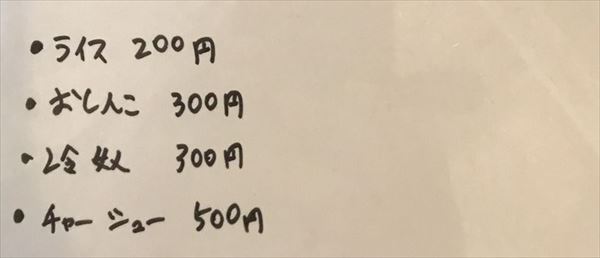 ・ライス 200円
・おしんこ 300円
・冷奴 300円
・チャーシュー 500円